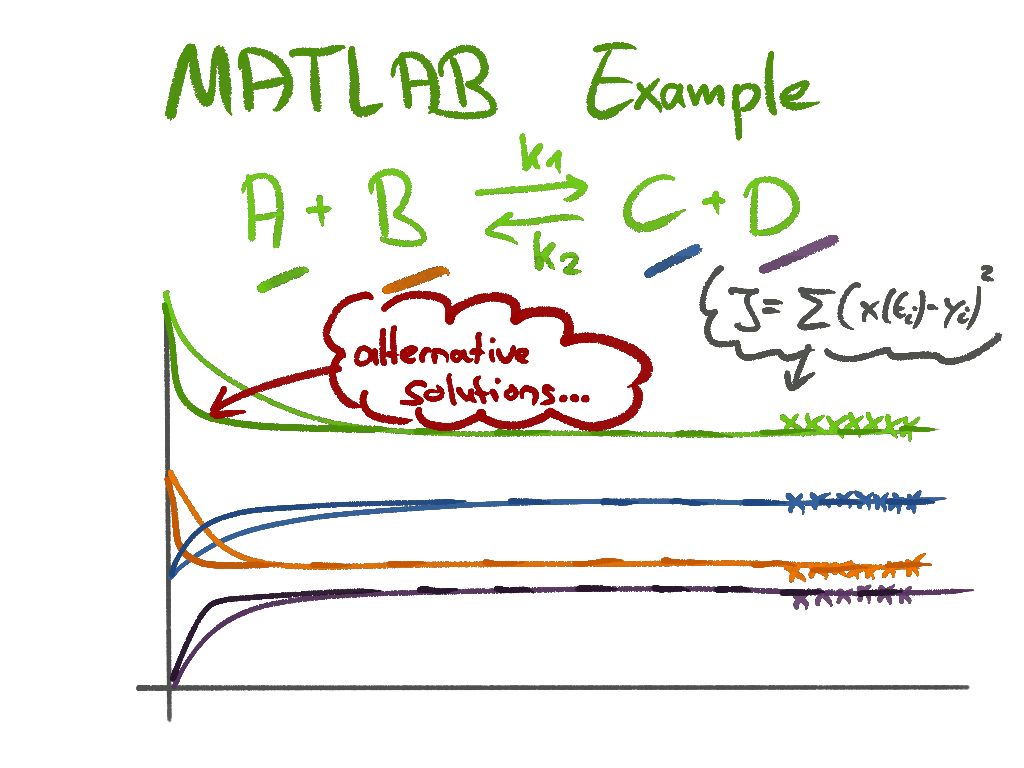 MATLAB Example
k1
A + B ⇌ C + D
k2
J = Σ (x(ti) - yi)²
alternative
solutions...